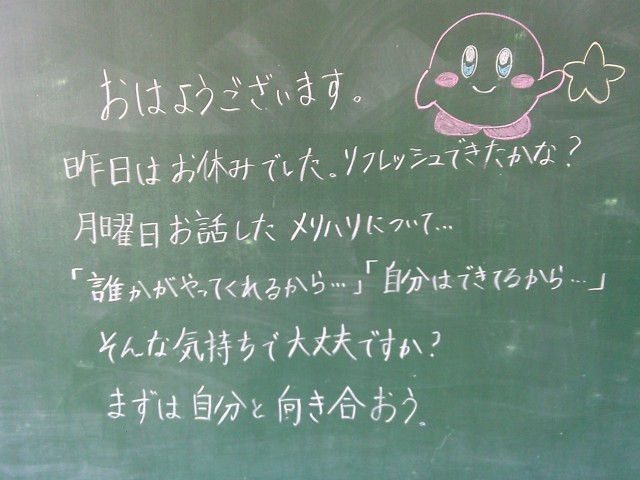 おはようございます。
昨日はお休みでした。リフレッシュできたかな?
月曜日お話したメリハリについて…
「誰かがやってくれるから…」「自分はできてるから…」
そんな気持ちで大丈夫ですか?
まずは自分と向き合おう。